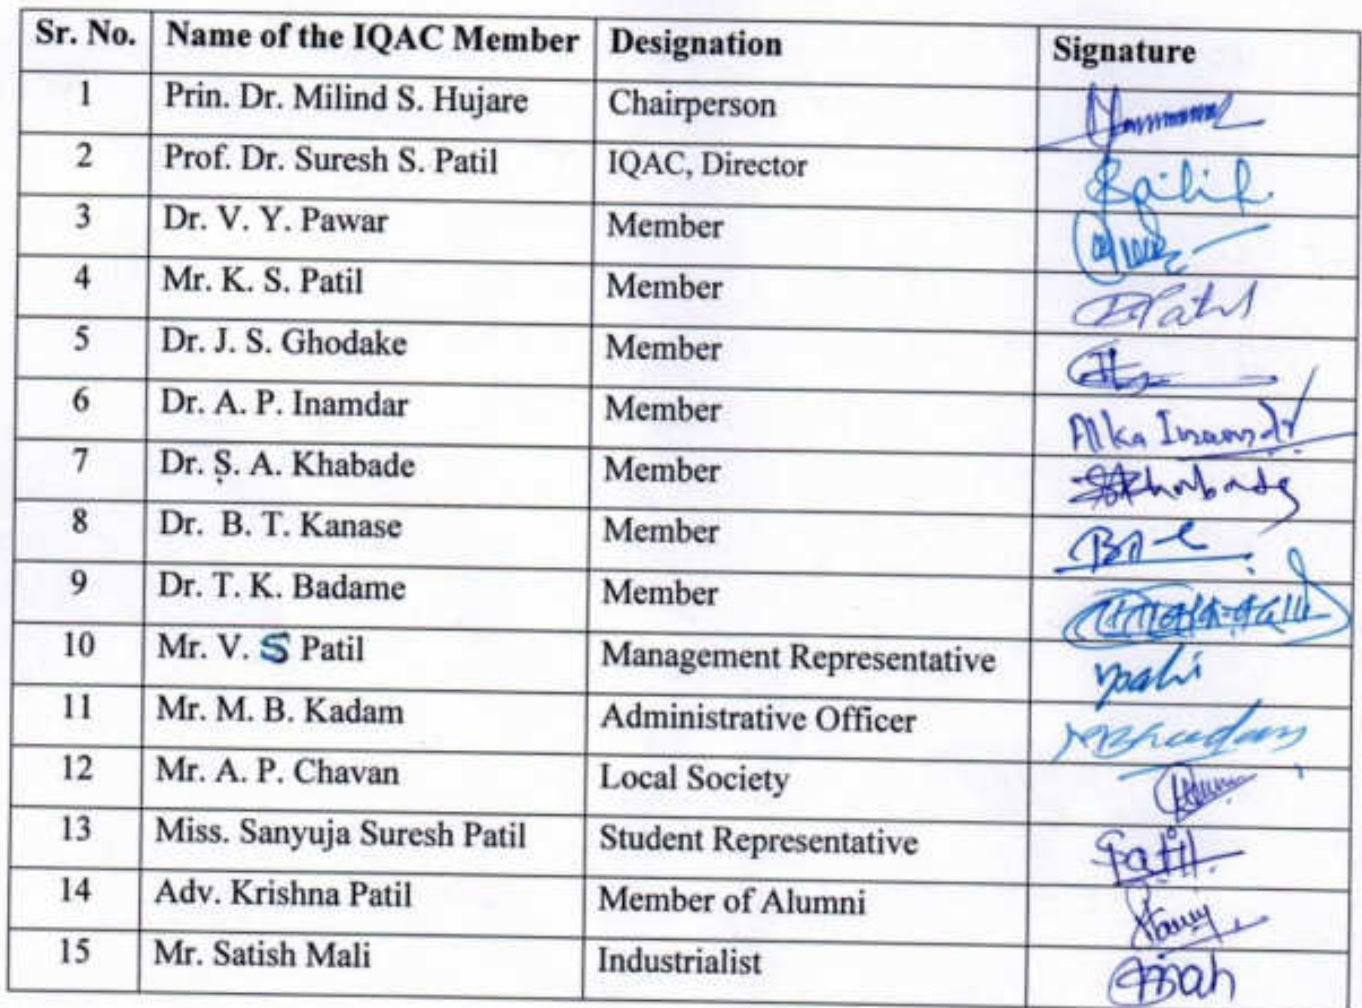 Sr. No. Name of the IQAC Member Designation Signature
1 Prin. Dr. Milind S. Hujare Chairperson
2 Prof. Dr. Suresh S. Patil IQAC, Director
3 Dr. V. Y. Pawar Member
4 Mr. K. S. Patil Member
5 Dr. J. S. Ghodake Member
6 Dr. A. P. Inamdar Member Alka Inamdr
7 Dr. S. A. Khabade Member
8 Dr. B. T. Kanase Member
9 Dr. T. K. Badame Member
10 Mr. V. S Patil Management Representative
11 Mr. M. B. Kadam Administrative Officer
12 Mr. A. P. Chavan Local Society
13 Miss. Sanyuja Suresh Patil Student Representative
14 Adv. Krishna Patil Member of Alumni
15 Mr. Satish Mali Industrialist